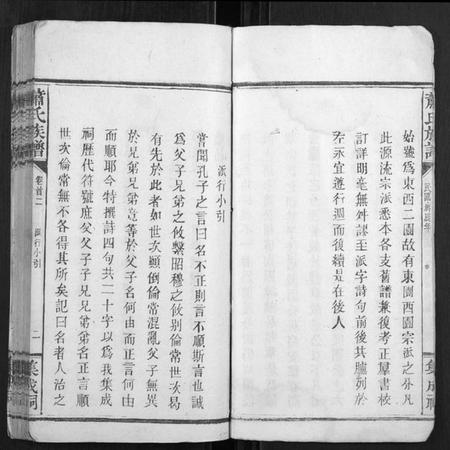 始號爲東西二園故有東園西園宗派之分凡
此源流宗派悉本各支舊譜兼後考正羣書校
訂詳明毫無舛謬至派字詩句前後其臚列於
左永宜遵行週而後續是在後人
蕭氏族譜
集成祠
蕭氏族譜
卷首二
派行小引
二
集成祠
派行小引
嘗聞孔子之言曰名不正則言不順斯言也誠
爲父子兄弟之攸繫昭穆之攸別倫常世次曷
有先於此者如世次顛倒倫常混亂父子無異
於兄弟兄弟竟等於父子名何由而正言何由
而順耶今特撰詩四句共二十字以爲我集成
祠歷代符號庶父父子子兄兄弟弟名正言順
世次倫常無不各得其所矣記曰名者人治之